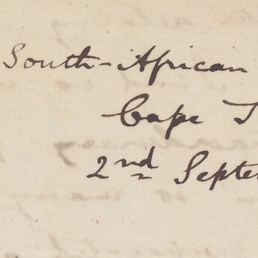 South-African
Cape T
2nd Septe